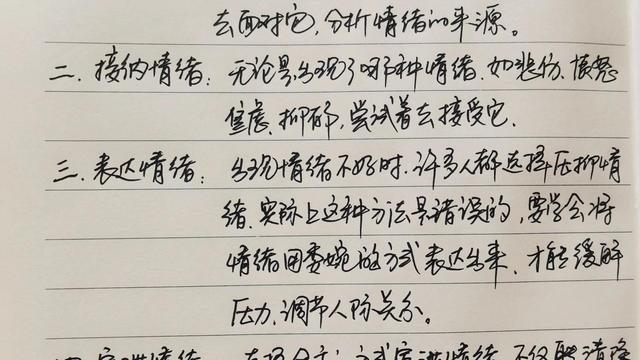 去面对它,分析情绪的来源。
二.接纳情绪:无论是出现了哪种情绪.如悲伤、愤怒
焦虑、抑郁,尝试着去接受它.
三.表达情绪:出现情绪不好时.许多人都选择压抑情
绪.实际上这种方法是错误的,要学会将
情绪用委婉的方式表达出来、才能缓解
压力,调节人际关系。
情绪